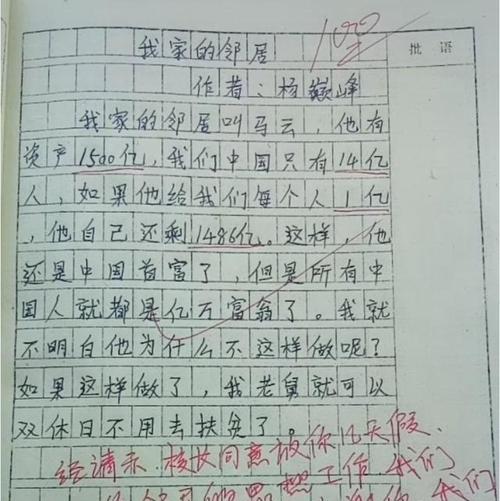 100
批语
我家的邻居
作者：杨巅峰
我家的邻居叫马云，他有
资产1500亿，我们中国只有14亿
人，如果他给我们每个人1亿
，他自己还剩1486亿。这样，他
还是中国首富了，但是所有中
国人就都是亿万富翁了。我就
不明白他为什么不这样做呢？
如果这样做了，我老舅就可以
双休日不用去扶贫了。
经请示、校长同意放你几天假、
思想工作 我们